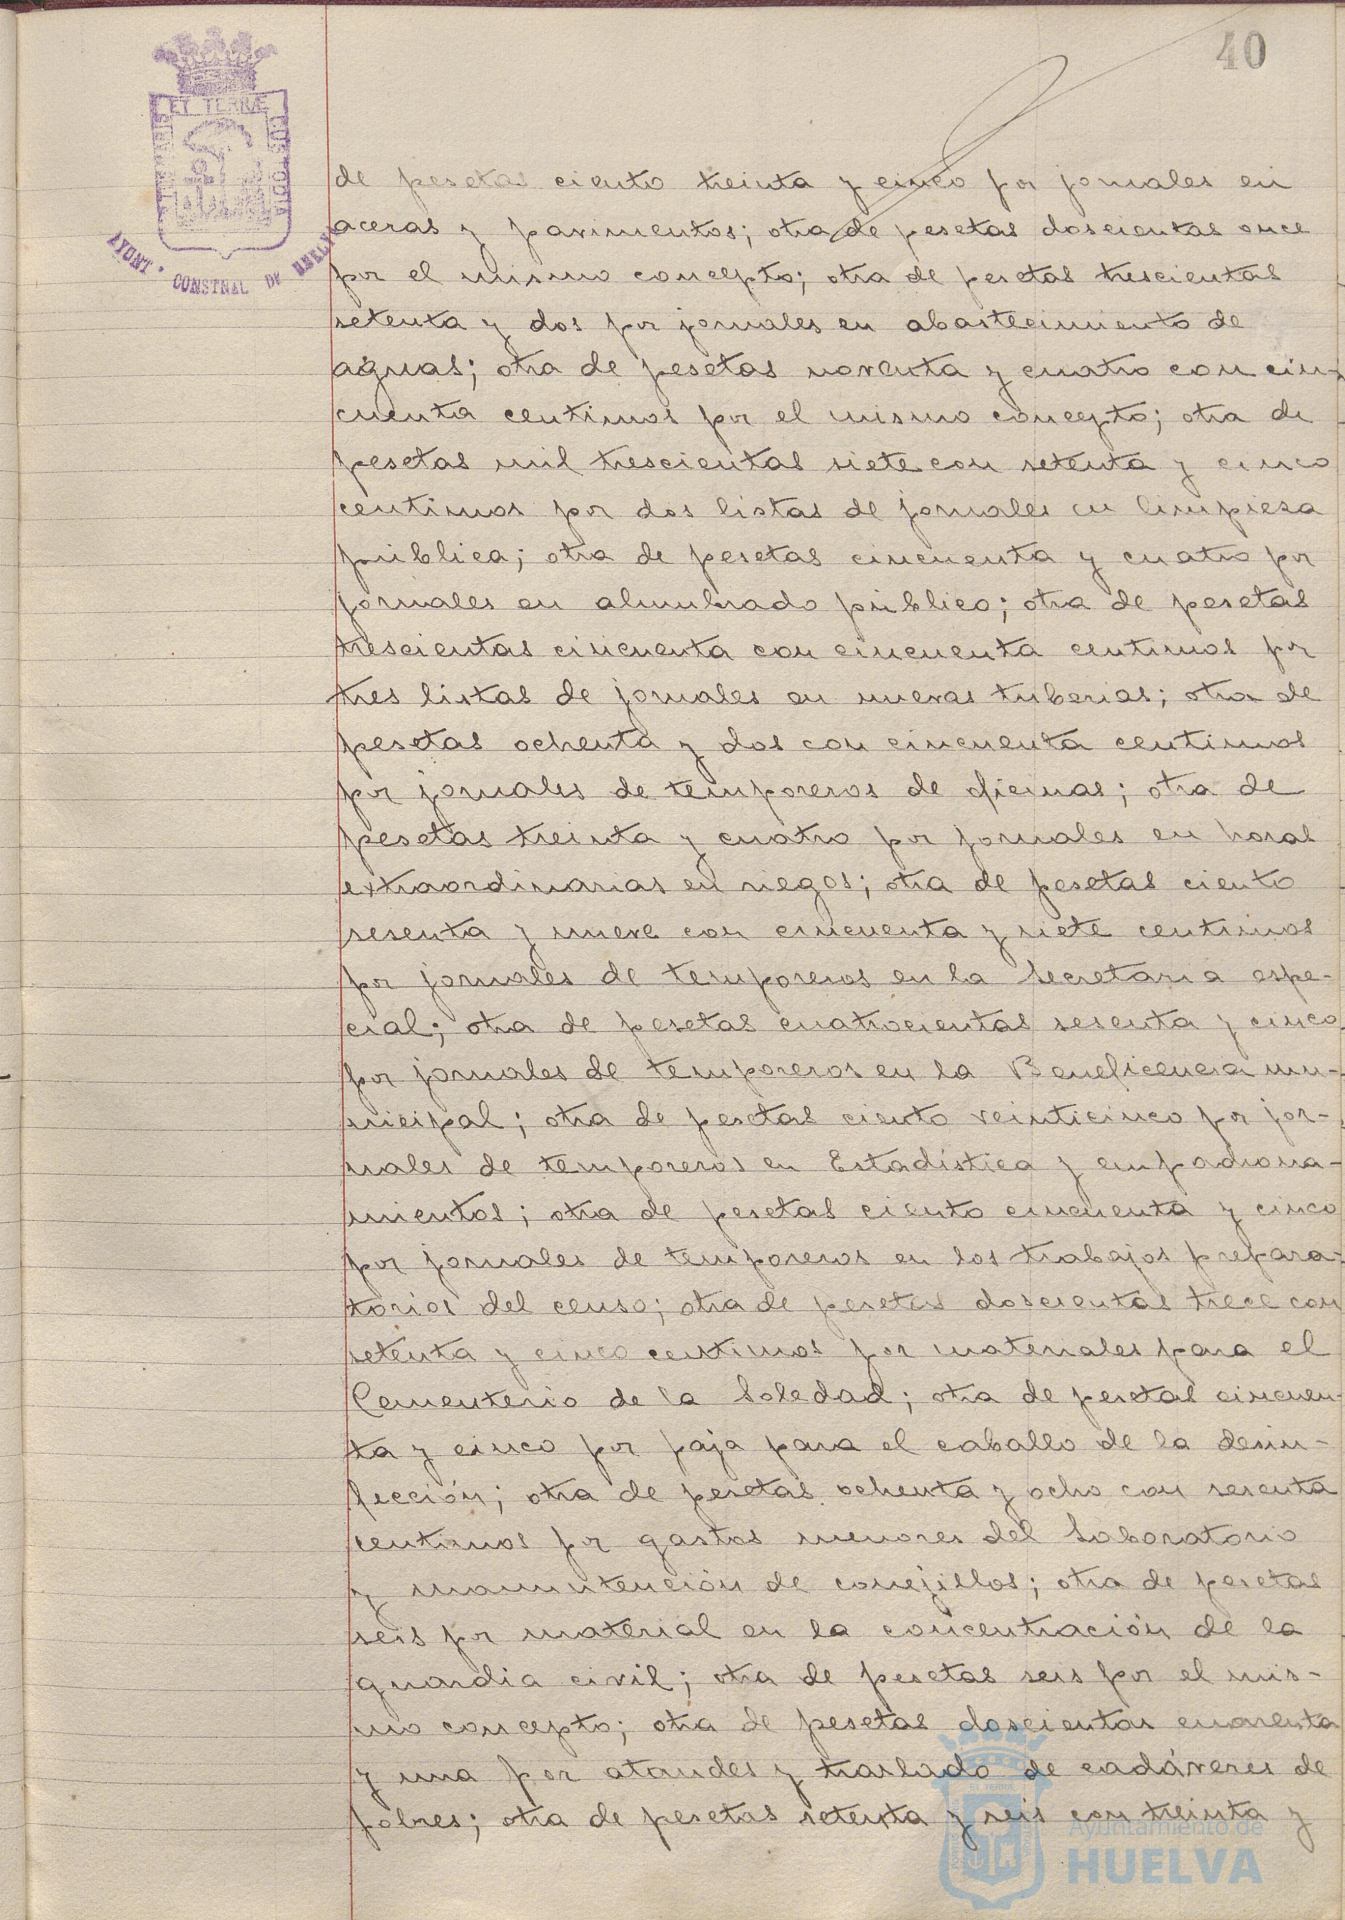 40
ET TERRÆ
CUSTODIA
AYUNT. CONSTNAL DE HUELVA
de pesetas ciento treinta y cinco por jornales en
aceras y pavimentos; otra de pesetas doscientas once
por el mismo concepto; otra de pesetas trescientas
setenta y dos por jornales en abastecimiento de
aguas; otra de pesetas noventa y cuatro con cin-
cuenta centimos por el mismo concepto; otra de
pesetas mil trescientas siete con setenta y cinco
centimos por dos listas de jornales en limpieza
pública; otra de pesetas cincuenta y cuatro por
jornales en alumbrado público; otra de pesetas
trescientas cincuenta con cincuenta centimos por
tres listas de jornales en nuevas tuberias; otra de
pesetas ochenta y dos con cincuenta centimos
por jornales de temporeros de oficinas; otra de
pesetas treinta y cuatro por jornales en horas
extraordinarias en riegos; otra de pesetas ciento
sesenta y nueve con cincuenta y siete centimos
por jornales de temporeros en la Secretaria espe-
cial; otra de pesetas cuatrocientas sesenta y cinco
por jornales de temporeros en la Beneficencia mu-
nicipal; otra de pesetas ciento veinticinco por jor-
nales de temporeros en Estadística y empadrona-
mientos; otra de pesetas ciento cincuenta y cinco
por jornales de temporeros en los trabajos prepara-
torios del censo; otra de pesetas doscientas trece con
setenta y cinco centimos por materiales para el
Cementerio de la Soledad; otra de pesetas cincuen-
ta y cinco por paja para el caballo de la desin-
fección; otra de pesetas ochenta y ocho con sesenta
centimos por gastos menores del Laboratorio
y manutención de conejillos; otra de pesetas
seis por material en la concentración de la
guardia civil; otra de pesetas seis por el mis-
mo concepto; otra de pesetas doscientas cuarenta
y una por ataudes y traslado de cadáveres de
pobres; otra de pesetas setenta y seis con treinta y
Ayuntamiento de
HUELVA